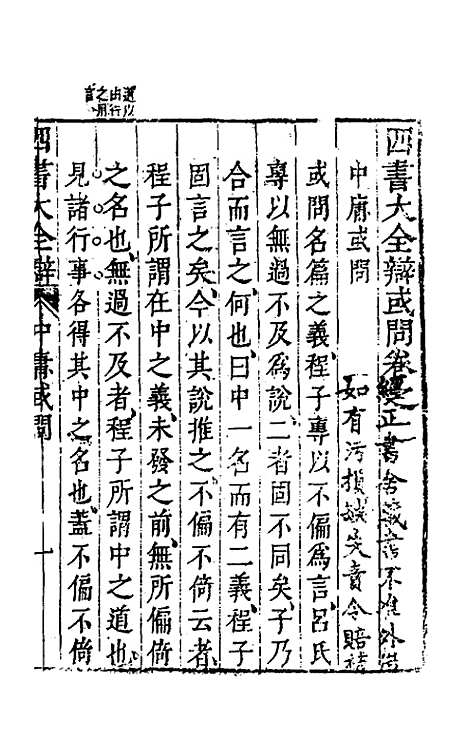 四書大全辯或問卷之一
經正書舍藏書不准外借
如有污損缺失責令賠補
中庸或問
或問名篇之義程子專以不偏爲言呂氏
專以無過不及爲說二者固不同矣子乃
合而言之何也曰中一名而有二義程子
固言之矣今以其說推之不偏不倚云者
程子所謂在中之義未發之前無所偏倚
之名也無過不及者程子所謂中之道也
見諸行事各得其中之名也蓋不偏不倚
四書大全辯 中庸或問 一
由行
之用